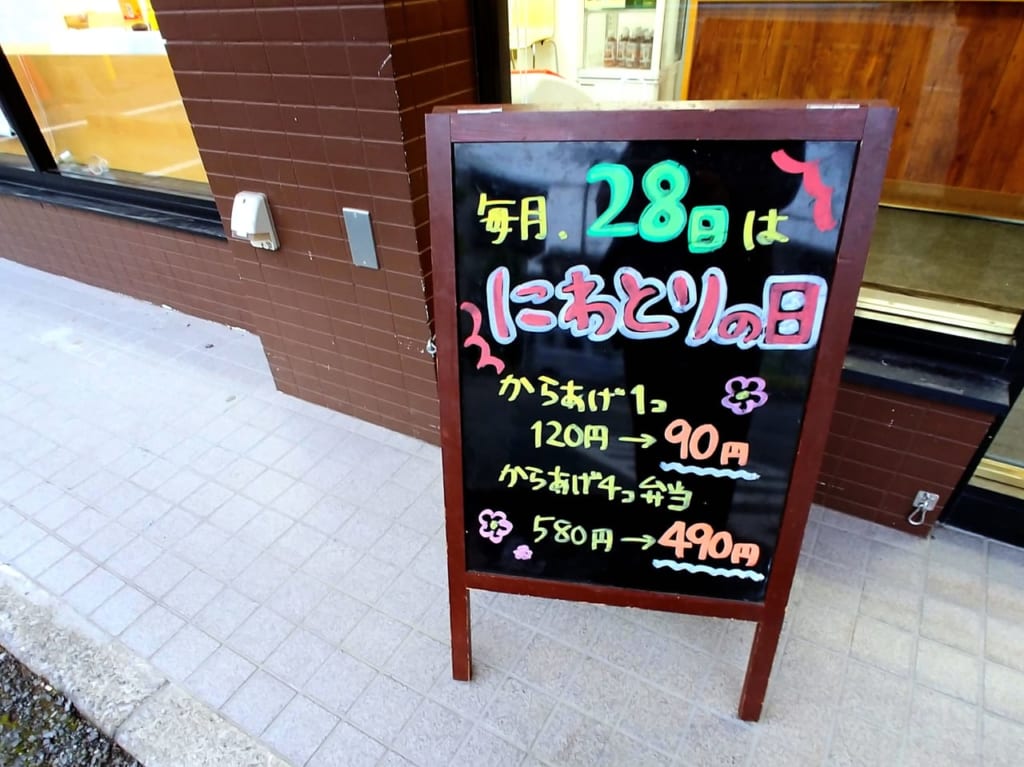 毎月.28日は
にわとりの日
からあげ1コ
120円→90円
からあげ4コ弁当
580円→490円